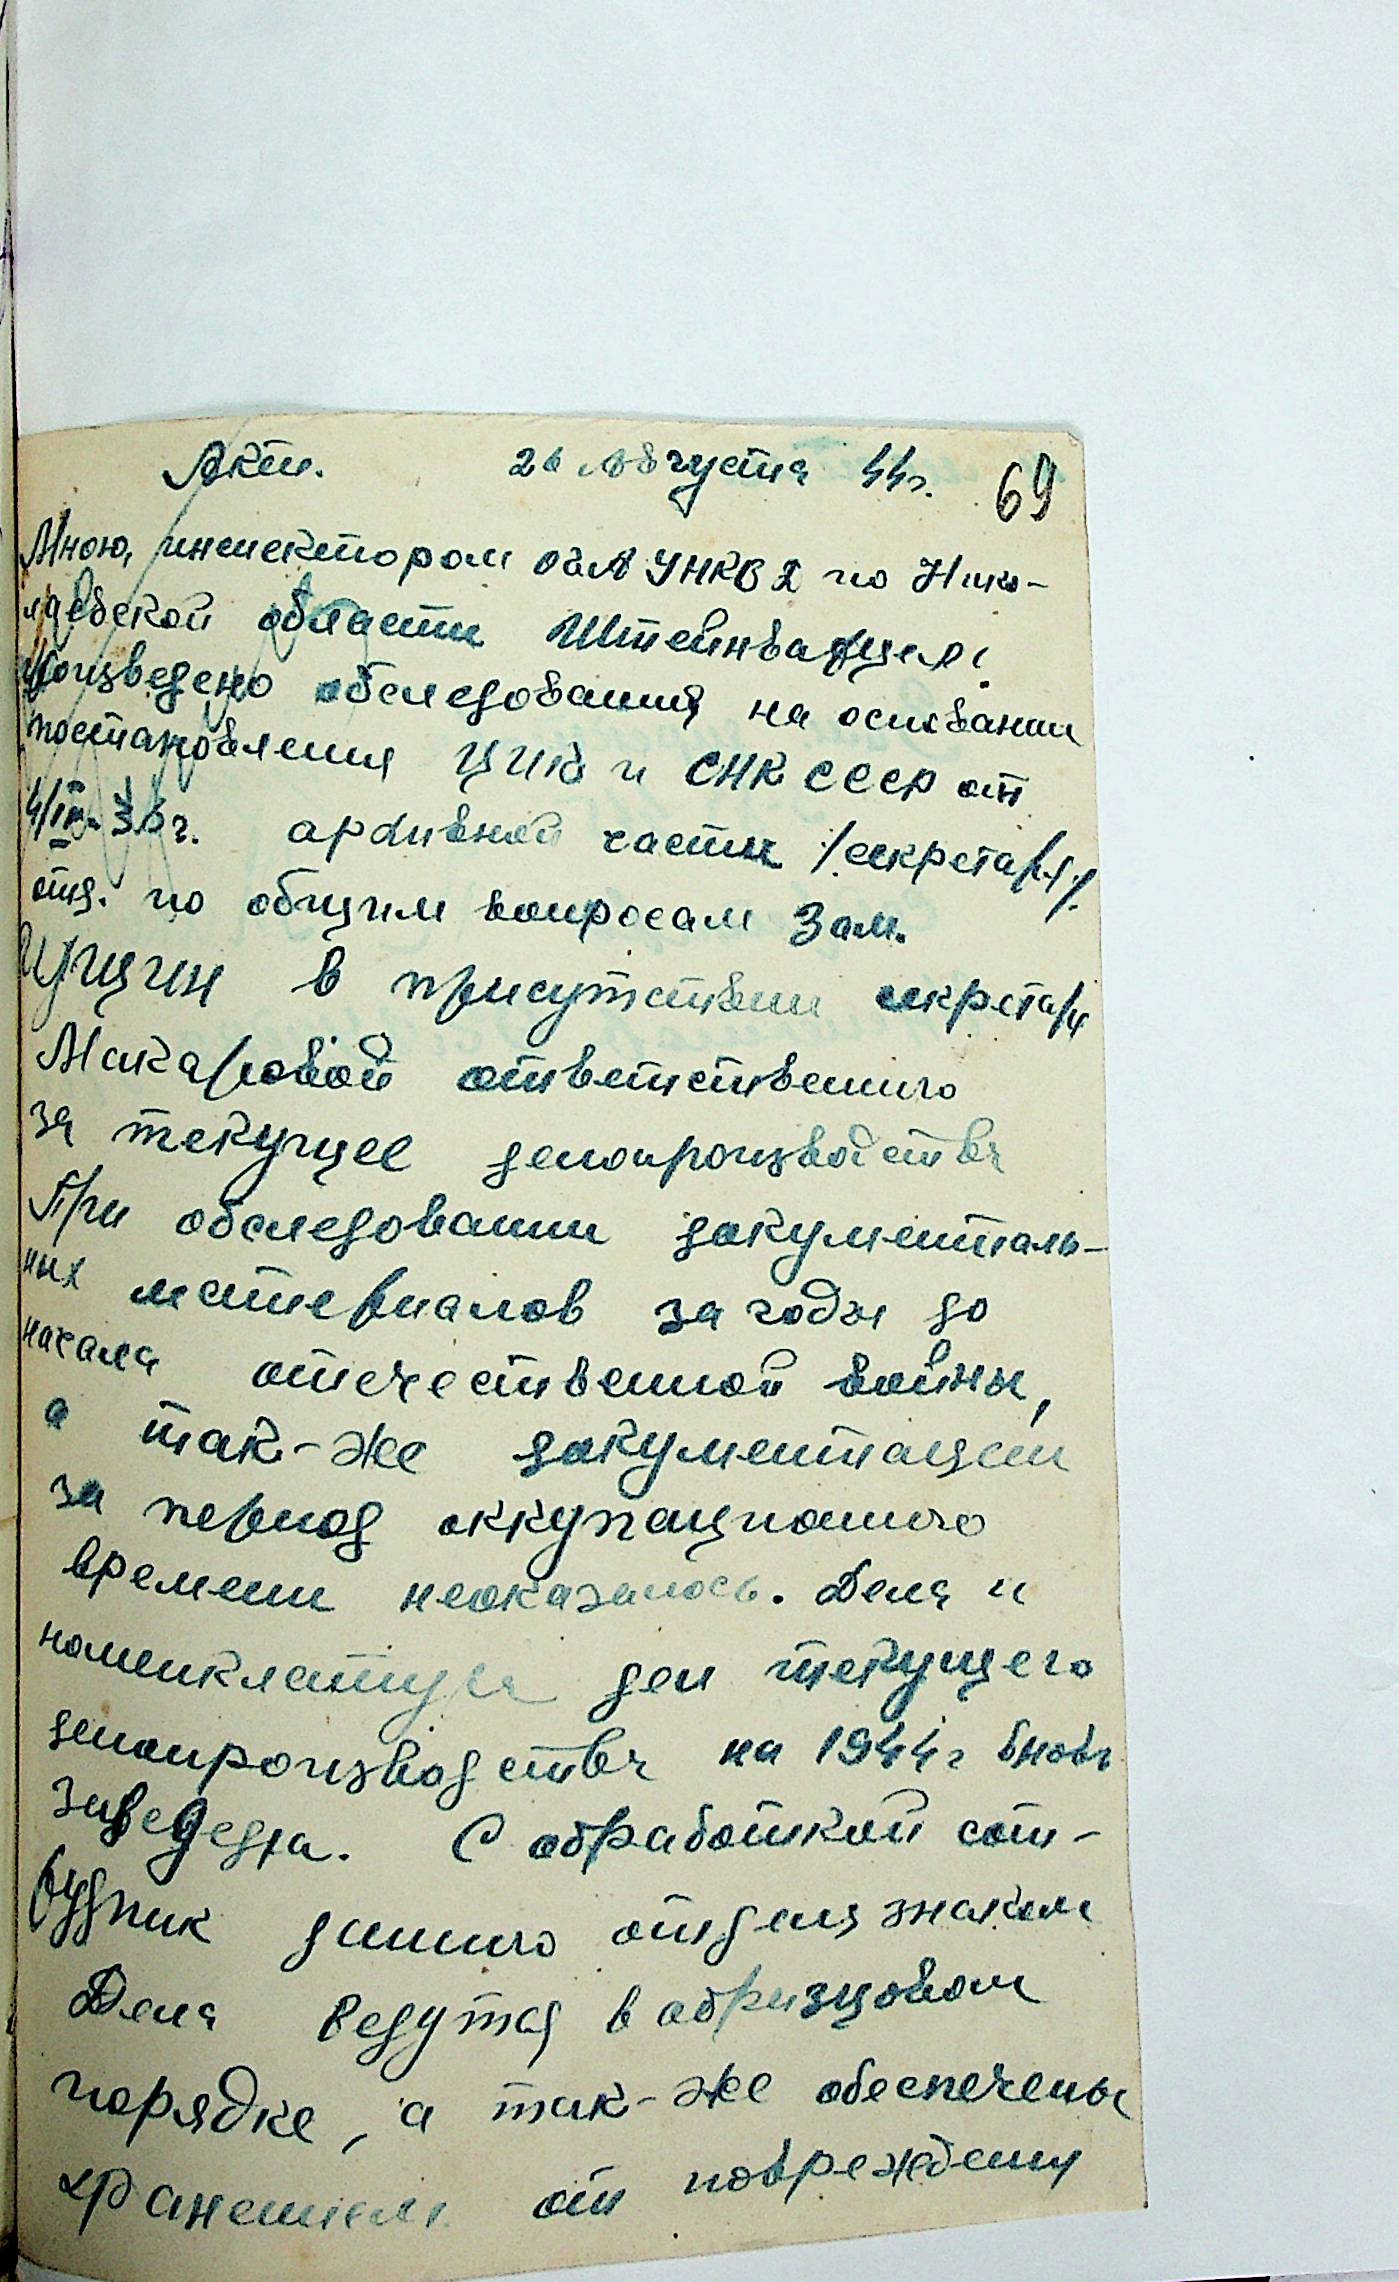 Акт. 26 Августа 44г. 69
Мною, инспектором ОГА УНКВД по Нико-
лаевской области Штейнванцем
произведено обследования на основании
постановления ЦИК и СНК СССР от
архивной части /секретаря/
отд. по общим вопросам Зам.
в присутствии секретаря
Макаровой ответственного
за текущее делопроизводства
При обследовании документаль-
ных материалов за годы до
начала отечественной войны,
а так-же документации
за период оккупационного
времени неоказалось. Дела и
номенклатура дел текущего
делопроизводства на 1944г вновь
заведена. С обработкой сот-
рудник данного отдела знаком
Дела ведутся в образцовом
порядке, а так-же обеспечены
хранением от повреждения